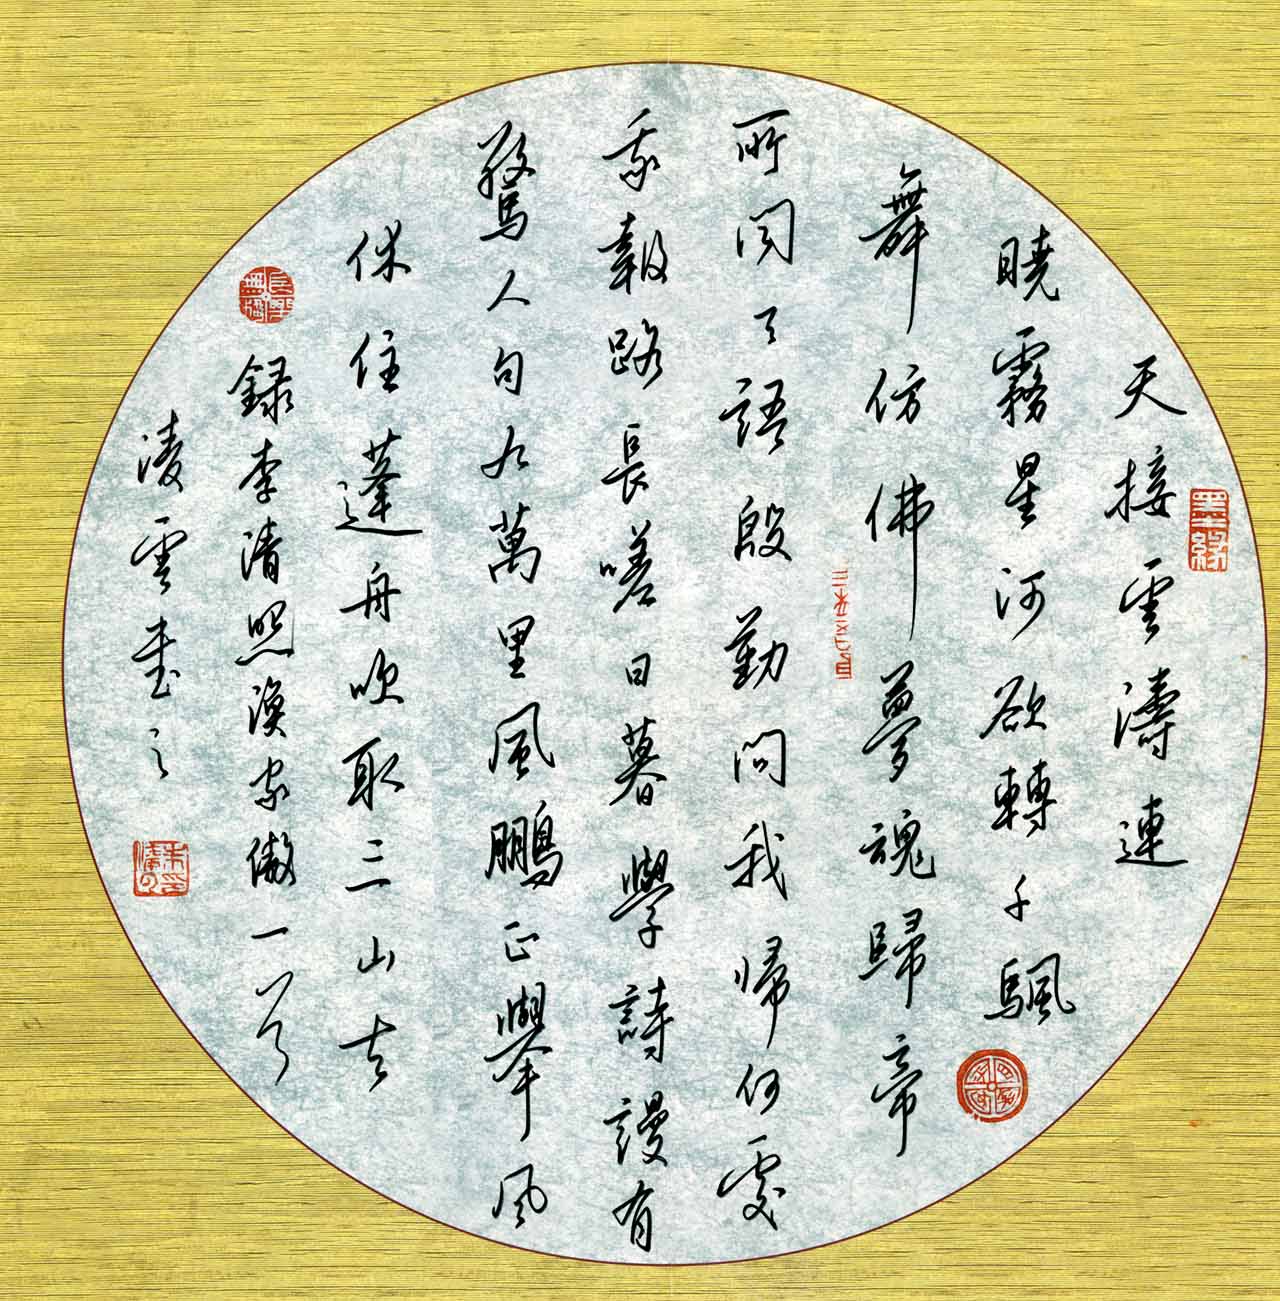 天接雲濤連
曉霧星河欲轉千颿
舞仿佛夢魂歸帝
所聞天語殷勤問我帰何處
我報路長嗟日暮學詩謾有
驚人句九萬里風鵬正舉風
休住蓬舟吹取三山去
録李清照漁家傲一首
凌雲書之
墨緣